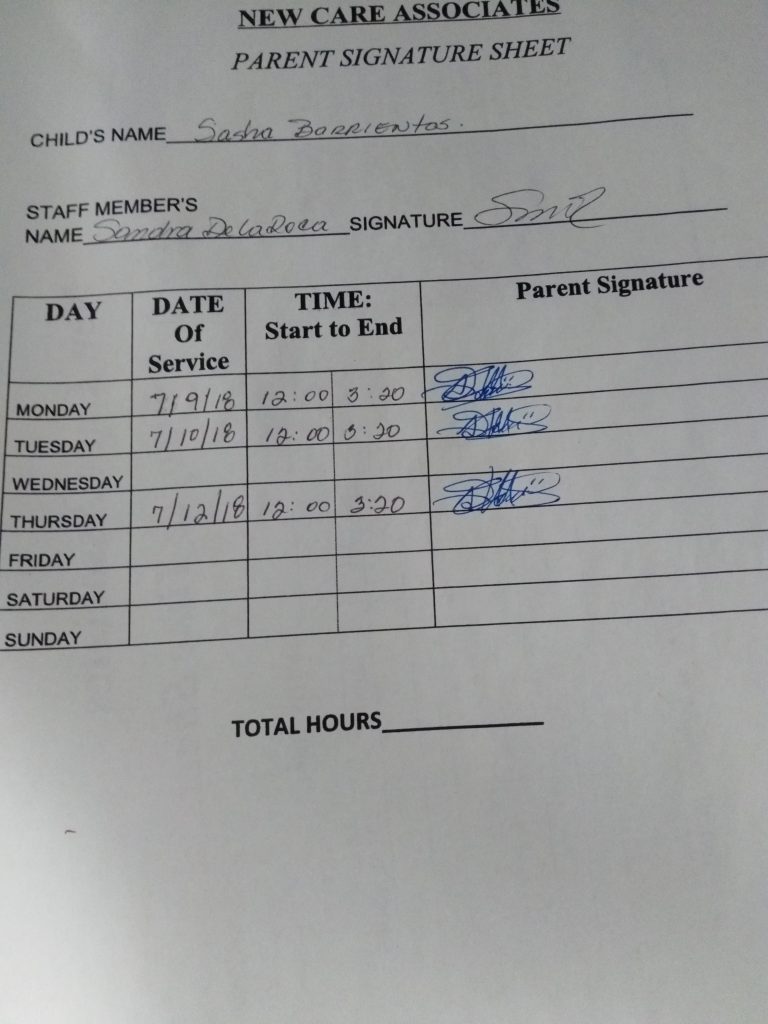 NEW CARE ASSOCIATES
PARENT SIGNATURE SHEET
CHILD'S NAME Sasha Barrientos.
STAFF MEMBER'S
NAME Sandra DelaRoca SIGNATURE
DAY DATE Of Service TIME: Start to End Parent Signature
MONDAY 7/9/18 12:00 3:20
TUESDAY 7/10/18 12:00 3:20
WEDNESDAY
THURSDAY 7/12/18 12:00 3:20
FRIDAY
SATURDAY
SUNDAY
TOTAL HOURS